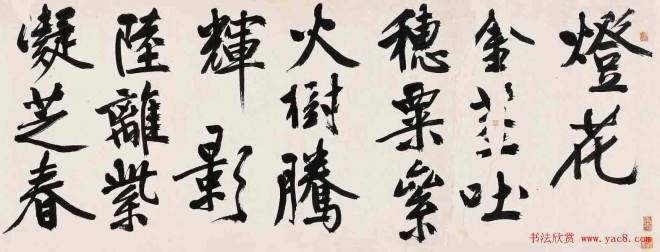 燈花
金吐
穗粟
火樹騰
輝影
陸離紫
凝芝春
书法欣赏 www.yac8.com